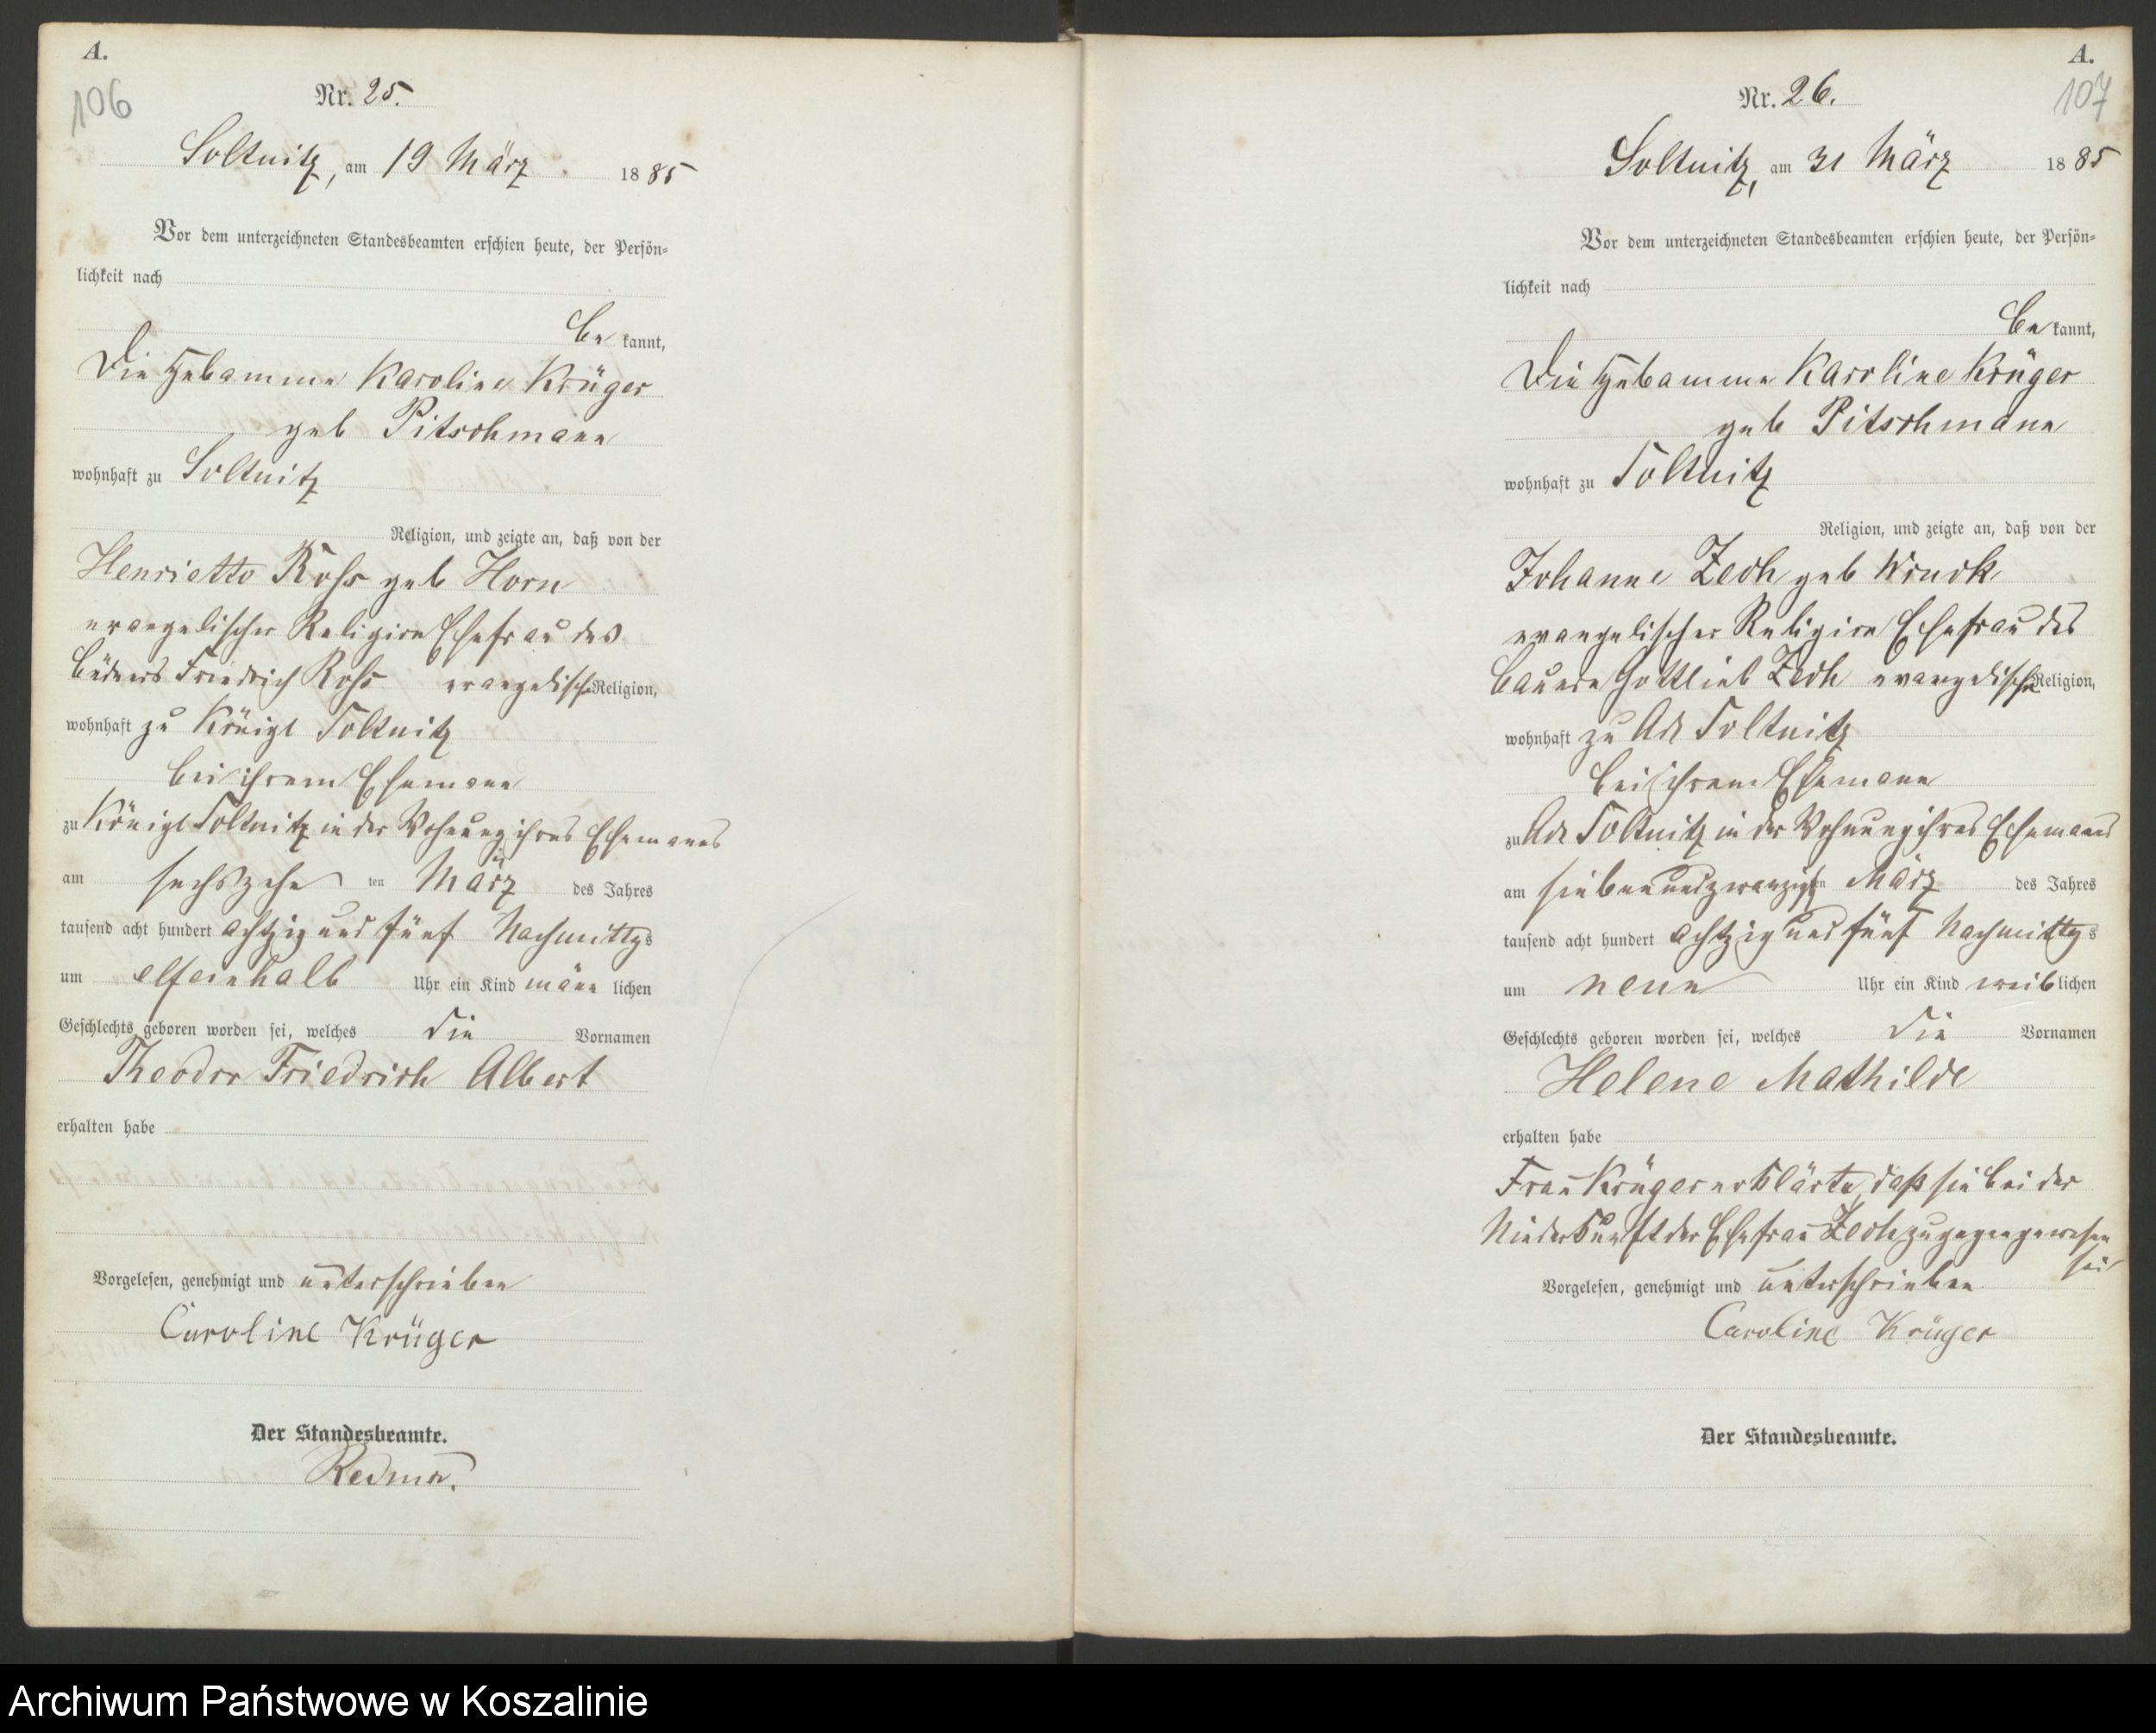 A.
106
Nr. 25.
Soltnitz, am 19 März 1885
Vor dem unterzeichneten Standesbeamten erschien heute, der Persön-
lichkeit nach
be kannt,
Die Hebamme Karoline Krüger
geb Pitschmann
wohnhaft zu Soltnitz
Religion, und zeigte an, daß von der
Henriette geb Horn
evangelischer Religion Ehefrau des
Friedrich evangelische Religion,
wohnhaft zu Königl Soltnitz
bei ihrem Ehemann
zu Königl Soltnitz in der Wohnung ihres Ehemanns
am sechszehn ten März des Jahres
tausend acht hundert achtzig und fünf Nachmittgs
um elfeinhalb Uhr ein Kind männ lichen
Geschlechts geboren worden sei, welches die Vornamen
Theodor Friedrich Albert
erhalten habe
Vorgelesen, genehmigt und unterschrieben
Caroline Krüger
Der Standesbeamte.
A.
107
Nr. 26.
Soltnitz, am 31 März 1885
Vor dem unterzeichneten Standesbeamten erschien heute, der Persön-
lichkeit nach
be kannt,
Die Hebamme Karoline Krüger
geb Pitschmann
wohnhaft zu Soltnitz
Religion, und zeigte an, daß von der
Johanne Zech geb Kruck
evangelischer Religion Ehefrau des
Bauern Gottlieb Zech evangelische Religion,
wohnhaft zu Adl Soltnitz
bei ihrem Ehemann
zu Adl Soltnitz in der Wohnung ihres Ehemanns
am siebenundzwanzigsten März des Jahres
tausend acht hundert achtzig und fünf Nachmittgs
um neun Uhr ein Kind weib lichen
Geschlechts geboren worden sei, welches die Vornamen
Helene Mathilde
erhalten habe
Frau Krüger erklärte, daß sie bei der
Niederkunft der Ehefrau Zech zugegen gewesen
sei
Vorgelesen, genehmigt und unterschrieben
Caroline Krüger
Der Standesbeamte.
Archiwum Państwowe w Koszalinie